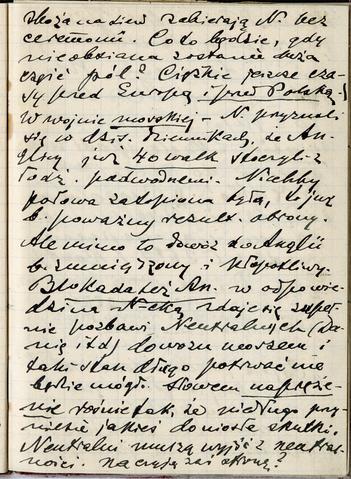 zboża na siew zabierają N. bez
ceremonii. Co to będzie, gdy
nieobsiana zostanie duża
część pól? Ciężkie jeszcze cza-
sy przed Europą i przed Polską.
W wojnie morskiej - N. przyznali
się w dzis. dziennikach, że An-
glicy już 40 walk stoczyli z
łodz. podwodnemi. N-aby
połowa zatopiona była, to już
b. poważny result. obrony.
Ale mimo to dowóz do Anglii
b. zmniejszony i kłopotliwy.
Blokada też An. w odpowie-
dzi na N-cką zdaje się zupeł-
nie pozbawi Neutralnych (Da-
nię itd) dowozu morzem i
taki stan długo potrwać nie
będzie mógł. Słowem napręże-
nie rośnie tak, że niedługo przy-
niesie jakieś doniosłe skutki.
Neutralni muszą wyjść z neutral-
ności. Na czyją zaś stronę?